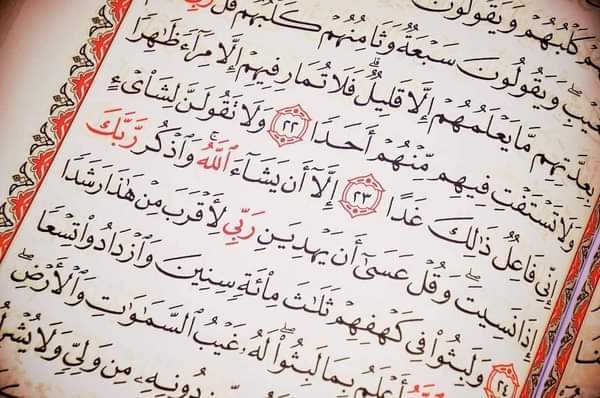 كَلۡبُهُمۡ وَيَقُولُونَ
وَيَقُولُونَ سَبۡعَةٞ وَثَامِنُهُمۡ كَلۡبُهُمۡ قُل
بِعِدَّتِهِم مَّا يَعۡلَمُهُمۡ إِلَّا قَلِيلٞۗ فَلَا تُمَارِ فِيهِمۡ إِلَّا مِرَآءٗ ظَٰهِرٗا
وَلَا تَسۡتَفۡتِ فِيهِم مِّنۡهُمۡ أَحَدٗا ٢٢ وَلَا تَقُولَنَّ لِشَاْيۡءٍ
إِنِّي فَاعِلٞ ذَٰلِكَ غَدًا ٢٣ إِلَّآ أَن يَشَآءَ ٱللَّهُۚ وَٱذۡكُر رَّبَّكَ
إِذَا نَسِيتَۖ وَقُلۡ عَسَىٰٓ أَن يَهۡدِيَنِ رَبِّي لِأَقۡرَبَ مِنۡ هَٰذَا رَشَدٗا
٢٤ وَلَبِثُواْ فِي كَهۡفِهِمۡ ثَلَٰثَ مِاْئَةٖ سِنِينَ وَٱزۡدَادُواْ تِسۡعٗا
أَعۡلَمُ بِمَا لَبِثُواْۖ لَهُۥ غَيۡبُ ٱلسَّمَٰوَٰتِ وَٱلۡأَرۡضِۖ
دُونِهِۦ مِن وَلِيّٖ وَلَا